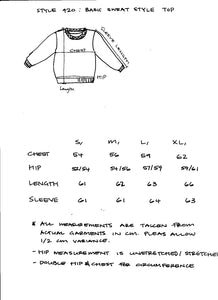 STYLE 920 : BASIC SWEAT STYLE TOP
SLEEVE LENGTH
CHEST
HIP
Length
S, M, L, XL,
CHEST 54 56 59 62
HIP 52/54 54/56 57/59 59/61
LENGTH 61 62 63 66
SLEEVE 61 61 64 63
* ALL MEASUREMENTS ARE TAKEN FROM
ACTUAL GARMENTS IN CM. PLEAS ALLOW
1/2 CM VARIANCE.
- HIP MEASUREMENT IS UNSTRETCHED/STRETCHED
- DOUBLE HIP & CHEST FOR CIRCUMFERENCE